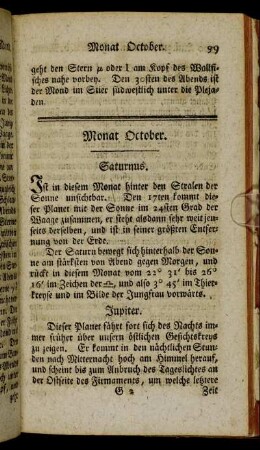 Monat October. 99
geht den Stern μ oder l am Kopf des Wallfi-
sches nahe vorbey. Den 30sten des Abends ist
der Mond im Stier südwestlich unter die Pleja-
den.
Monat October.
Saturnus.
Ist in diesem Monat hinter den Stralen der
Sonne unsichtbar. Den 17ten kommt die-
ser Planet mit der Sonne im 24sten Grad der
Waage zusammen, er steht alsdann sehr weit jen-
seits derselben, und ist in seiner größten Entfer-
nung von der Erde.
Der Saturn bewegt sich hinterhalb der Son-
ne am stärksten von Abend gegen Morgen, und
rückt in diesem Monat vom 22° 31′ bis 26°
16′ im Zeichen der ♎, und also 3° 45′ im Thier-
kreyse und im Bilde der Jungfrau vorwärts.
Jupiter.
Dieser Planet fährt fort sich des Nachts im-
mer früher über unsern östlichen Gesichtskreys
zu zeigen. Er kommt in den nächtlichen Stun-
den nach Mitternacht hoch am Himmel herauf,
und scheint bis zum Anbruch des Tageslichtes an
der Ostseite des Firmaments, um welche letztere
G 2 Zeit